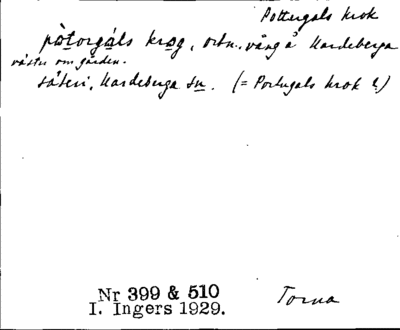 Pottergals krok
pòtorgáls krog, ortn., vång å Hardeberga
väster om gården.
säteri, Hardeberga sn. (= Portugals krok ?)
Nr 399 & 510
I. Ingers 1929.
Torna